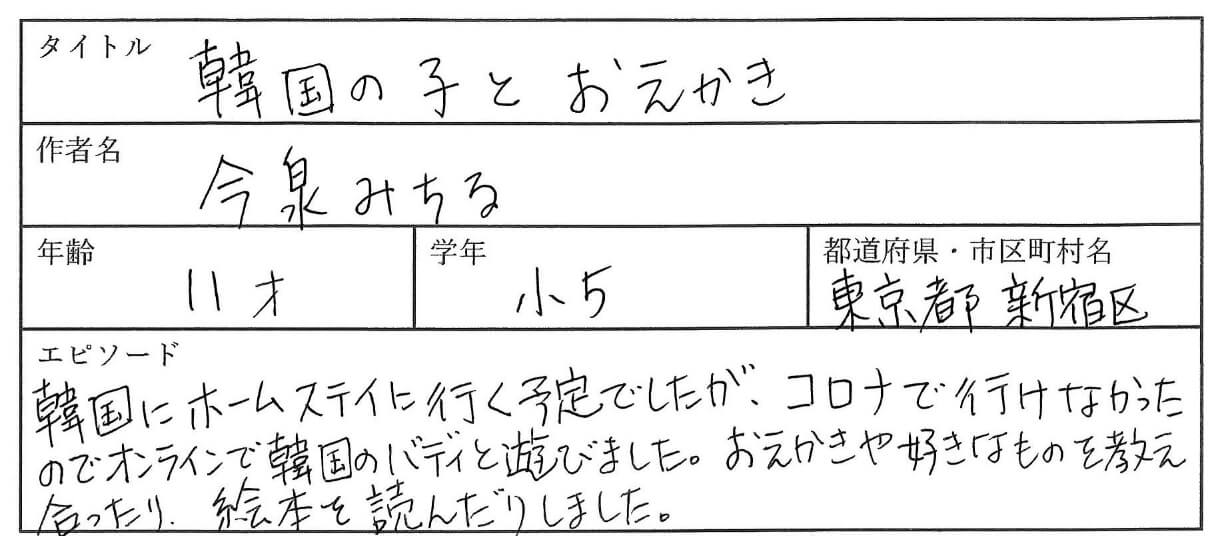 タイトル
韓国の子とおえかき
作者名
今泉みちる
年齢
11才
学年
小5
都道府県・市区町村名
東京都 新宿区
エピソード
韓国にホームステイに行く予定でしたが、コロナで行けなかった
のでオンラインで韓国のバディと遊びました。おえかきや好きなものを教え
合ったり、絵本を読んだりしました。